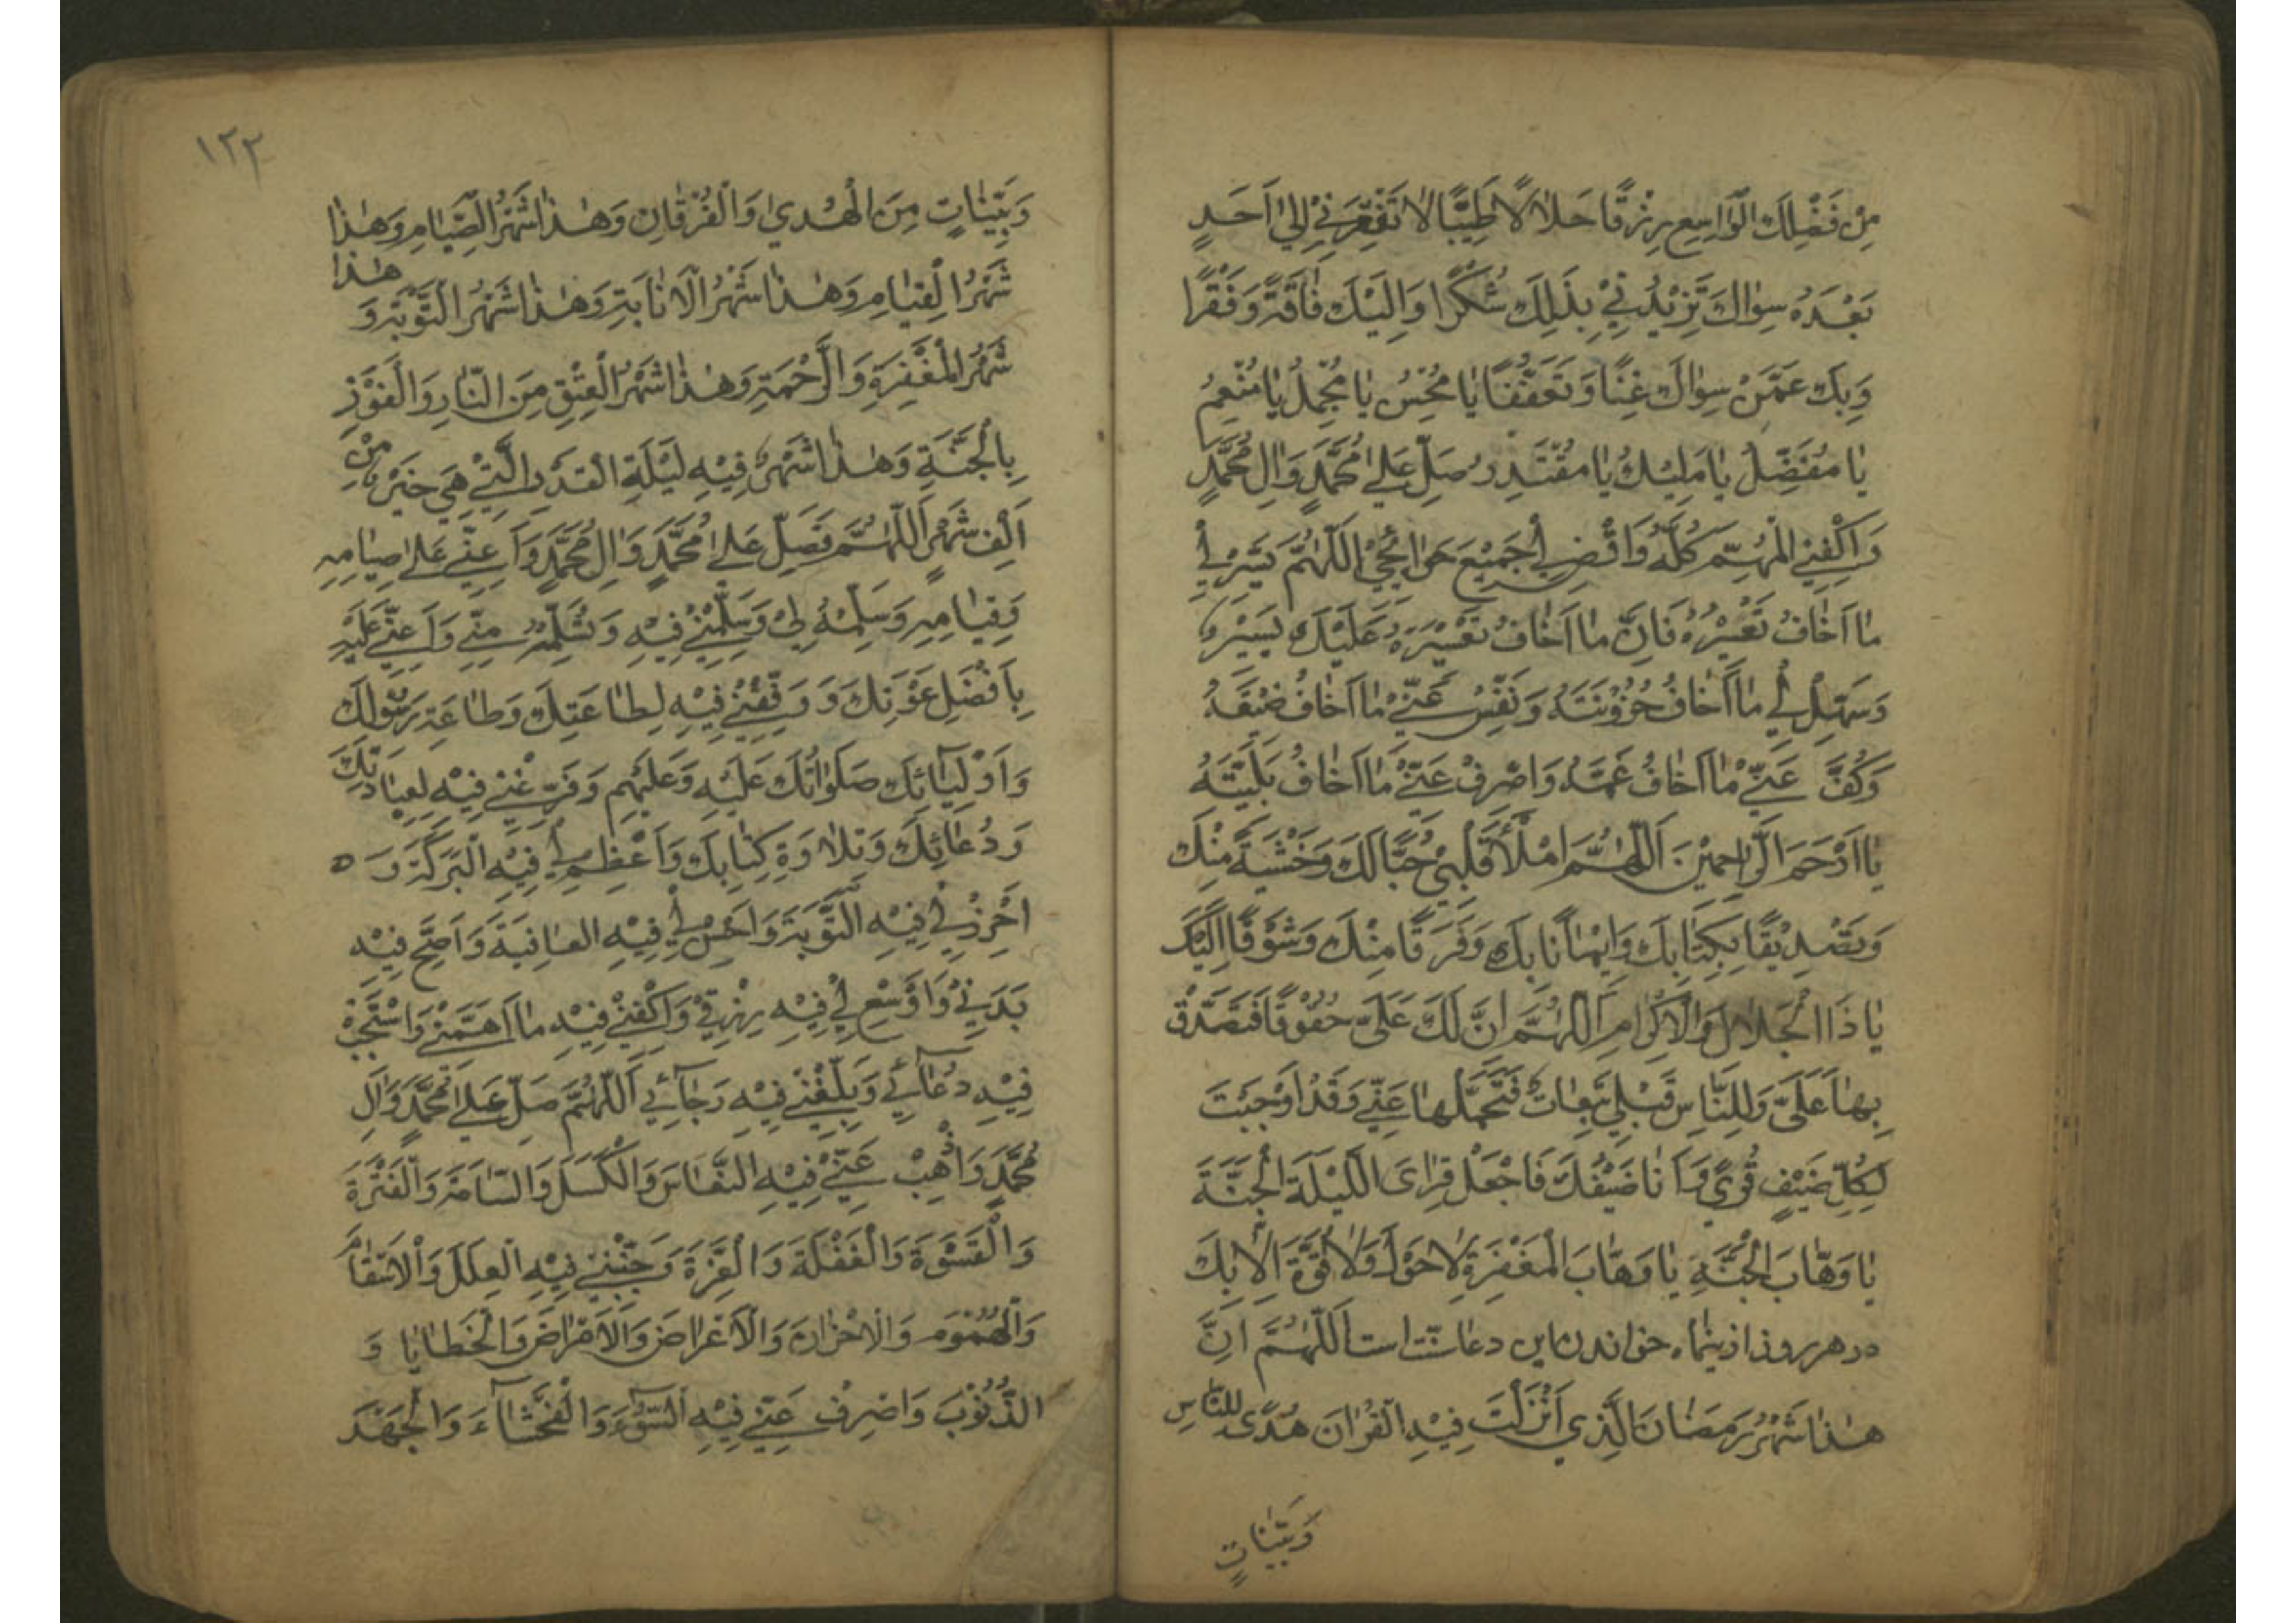 مِنْ فَضْلِكَ الْوَاسِعِ رِزْقًا حَلَالًا طَيِّبًا لَا تُفْقِرْنِي إِلَى أَحَدٍ
بَعْدَهُ سِوَاكَ تَزِيدُنِي بِذَلِكَ شُكْرًا وَإِلَيْكَ فَاقَةً وَفَقْرًا
وَبِكَ عَمَّنْ سِوَاكَ غِنًا وَتَعَفُّفًا يَا مُحْسِنُ يَا مُجْمِلُ يَا مُنْعِمُ
يَا مُفَضِّلُ يَا مَلِيكُ يَا مُقْتَدِرُ صَلِّ عَلَى مُحَمَّدٍ وَآلِ مُحَمَّدٍ
وَاكْفِنِي الْمُهِمَّ كُلَّهُ وَاقْضِ لِي جَمِيعَ حَوَائِجِي اللَّهُمَّ يَسِّرْ لِي
مَا أَخَافُ تَعْسِيرَهُ فَإِنَّ مَا أَخَافُ تَعْسِيرَهُ عَلَيْكَ يَسِيرٌ
وَسَهِّلْ لِي مَا أَخَافُ حُزُونَتَهُ وَنَفِّسْ عَنِّي مَا أَخَافُ ضِيقَهُ
وَكُفَّ عَنِّي مَا أَخَافُ غَمَّهُ وَاصْرِفْ عَنِّي مَا أَخَافُ بَلِيَّتَهُ
يَا أَرْحَمَ الرَّاحِمِينَ اَللَّهُمَّ امْلَأْ قَلْبِي حُبًّا لَكَ وَخَشْيَةً مِنْكَ
وَتَصْدِيقًا بِكِتَابِكَ وَإِيمَانًا بِكَ وَفَرَقًا مِنْكَ وَشَوْقًا إِلَيْكَ
يَا ذَا الْجَلَالِ وَالْإِكْرَامِ اَللَّهُمَّ إِنَّ لَكَ عَلَيَّ حُقُوقًا فَتَصَدَّقْ
بِهَا عَلَيَّ وَلِلنَّاسِ قِبَلِي تَبِعَاتٌ فَتَحَمَّلْهَا عَنِّي وَقَدْ أَوْجَبْتَ
لِكُلِّ ضَيْفٍ قِرًى وَأَنَا ضَيْفُكَ فَاجْعَلْ قِرَايَ اللَّيْلَةَ الْجَنَّةَ
يَا وَهَّابَ الْجَنَّةِ يَا وَهَّابَ الْمَغْفِرَةِ لَا حَوْلَ وَلَا قُوَّةَ إِلَّا بِكَ
در هر روز از ینماه خواندن این دعا سنّت است اَللَّهُمَّ إِنَّ
هَذَا شَهْرُ رَمَضَانَ الَّذِي أَنْزَلْتَ فِيهِ الْقُرْآنَ هُدًى لِلنَّاسِ
وَبَيِّنَاتٍ
۱۲۳
وَبَيِّنَاتٍ مِنَ الْهُدَى وَالْفُرْقَانِ وَهَذَا شَهْرُ الصِّيَامِ وَهَذَا
شَهْرُ الْقِيَامِ وَهَذَا شَهْرُ الْإِنَابَةِ وَهَذَا شَهْرُ التَّوْبَةِ وَ هَذَا
شَهْرُ الْمَغْفِرَةِ وَالرَّحْمَةِ وَهَذَا شَهْرُ الْعِتْقِ مِنَ النَّارِ وَالْفَوْزِ
بِالْجَنَّةِ وَهَذَا شَهْرٌ فِيهِ لَيْلَةِ الْقَدْرِ الَّتِي هِيَ خَيْرٌ مِنْ
أَلْفِ شَهْرٍ اَللَّهُمَّ فَصَلِّ عَلَى مُحَمَّدٍ وَآلِ مُحَمَّدٍ وَأَعِنِّي عَلَى صِيَامِهِ
وَقِيَامِهِ وَسَلِّمْهُ لِي وَسَلِّمْنِي فِيهِ وَتَسَلَّمْهُ مِنِّي وَأَعِنِّي عَلَيْهِ
بِأَفْضَلِ عَوْنِكَ وَوَفِّقْنِي فِيهِ لِطَاعَتِكَ وَطَاعَةِ رَسُولِكَ
وَأَوْلِيَائِكَ صَلَوَاتُكَ عَلَيْهِ وَعَلَيْهِمْ وَفَرِّغْنِي فِيهِ لِعِبَادَتِكَ
وَدُعَائِكَ وَتِلَاوَةِ كِتَابِكَ وَأَعْظِمْ لِي فِيهِ الْبَرَكَةَ وَ
احْرُزْ لِي فِيهِ التَّوْبَةَ وَأَحْسِنْ لِي فِيهِ الْعَافِيَةَ وَأَصِحَّ فِيهِ
بَدَنِي وَأَوْسِعْ لِي فِيهِ رِزْقِي وَاكْفِنِي فِيهِ مَا أَهَمَّنِي وَاسْتَجِبْ
فِيهِ دُعَائِي وَبَلِّغْنِي فِيهِ رَجَائِي اَللَّهُمَّ صَلِّ عَلَى مُحَمَّدٍ وَآلِ
مُحَمَّدٍ وَأَذْهِبْ عَنِّي فِيهِ النُّعَاسَ وَالْكَسَلَ وَالسَّامَةَ وَالْفَتْرَةَ
وَالْقَسْوَةَ وَالْغَفْلَةَ وَالْغِرَّةَ وَجَنِّبْنِي فِيهِ الْعِلَلَ وَالْأَسْقَامَ
وَالْهُمُومَ وَالْأَحْزَانَ وَالْأَعْرَاضَ وَالْأَمْرَاضَ وَالْخَطَايَا وَ
الذُّنُوبَ وَاصْرِفْ عَنِّي فِيهِ السُّوءَ وَالْفَحْشَاءَ وَالْجَهْدَ